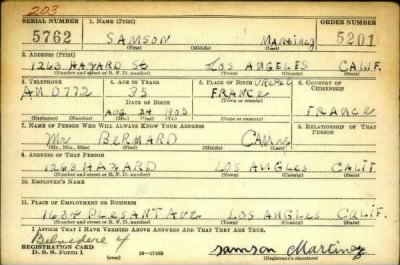 203
SERIAL NUMBER 1. NAME (Print) ORDER NUMBER
5762 SAMSON MARTINEZ 5201
(First) (Middle) (Last)
2. ADDRESS (Print)
1263 HAZARD ST LOS ANGELES CALIF.
(Number and street or R. F. D. number) (Town) (County) (State)
3. TELEPHONE 4. AGE IN YEARS 5. PLACE OF BIRTH 6. COUNTRY OF CITIZENSHIP
AN 0772 35 FRANCE
DATE OF BIRTH (Town or county)
AUG 24 1905 FRANCE
(Exchange) (Number) (Mo.) (Day) (Yr.) (State or country)
7. NAME OF PERSON WHO WILL ALWAYS KNOW YOUR ADDRESS 8. RELATIONSHIP OF THAT PERSON
Mr BERNARD
(Mr., Mrs., Miss) (First) (Middle) (Last)
9. ADDRESS OF THAT PERSON
1263 HAZARD LOS ANGLES CALIF
(Number and street or R. F. D. number) (Town) (County) (State)
10. EMPLOYER'S NAME
11. PLACE OF EMPLOYMENT OR BUSINESS
1634 PLESANT AVE LOS ANGLES CALIF
(Number and street or R. F. D. number) (Town) (County) (State)
I AFFIRM THAT I HAVE VERIFIED ABOVE ANSWERS AND THAT THEY ARE TRUE.
Belvedere 4
REGISTRATION CARD
D. S. S. Form 1 16—17105 Samson Martinez
(Registrant's signature)